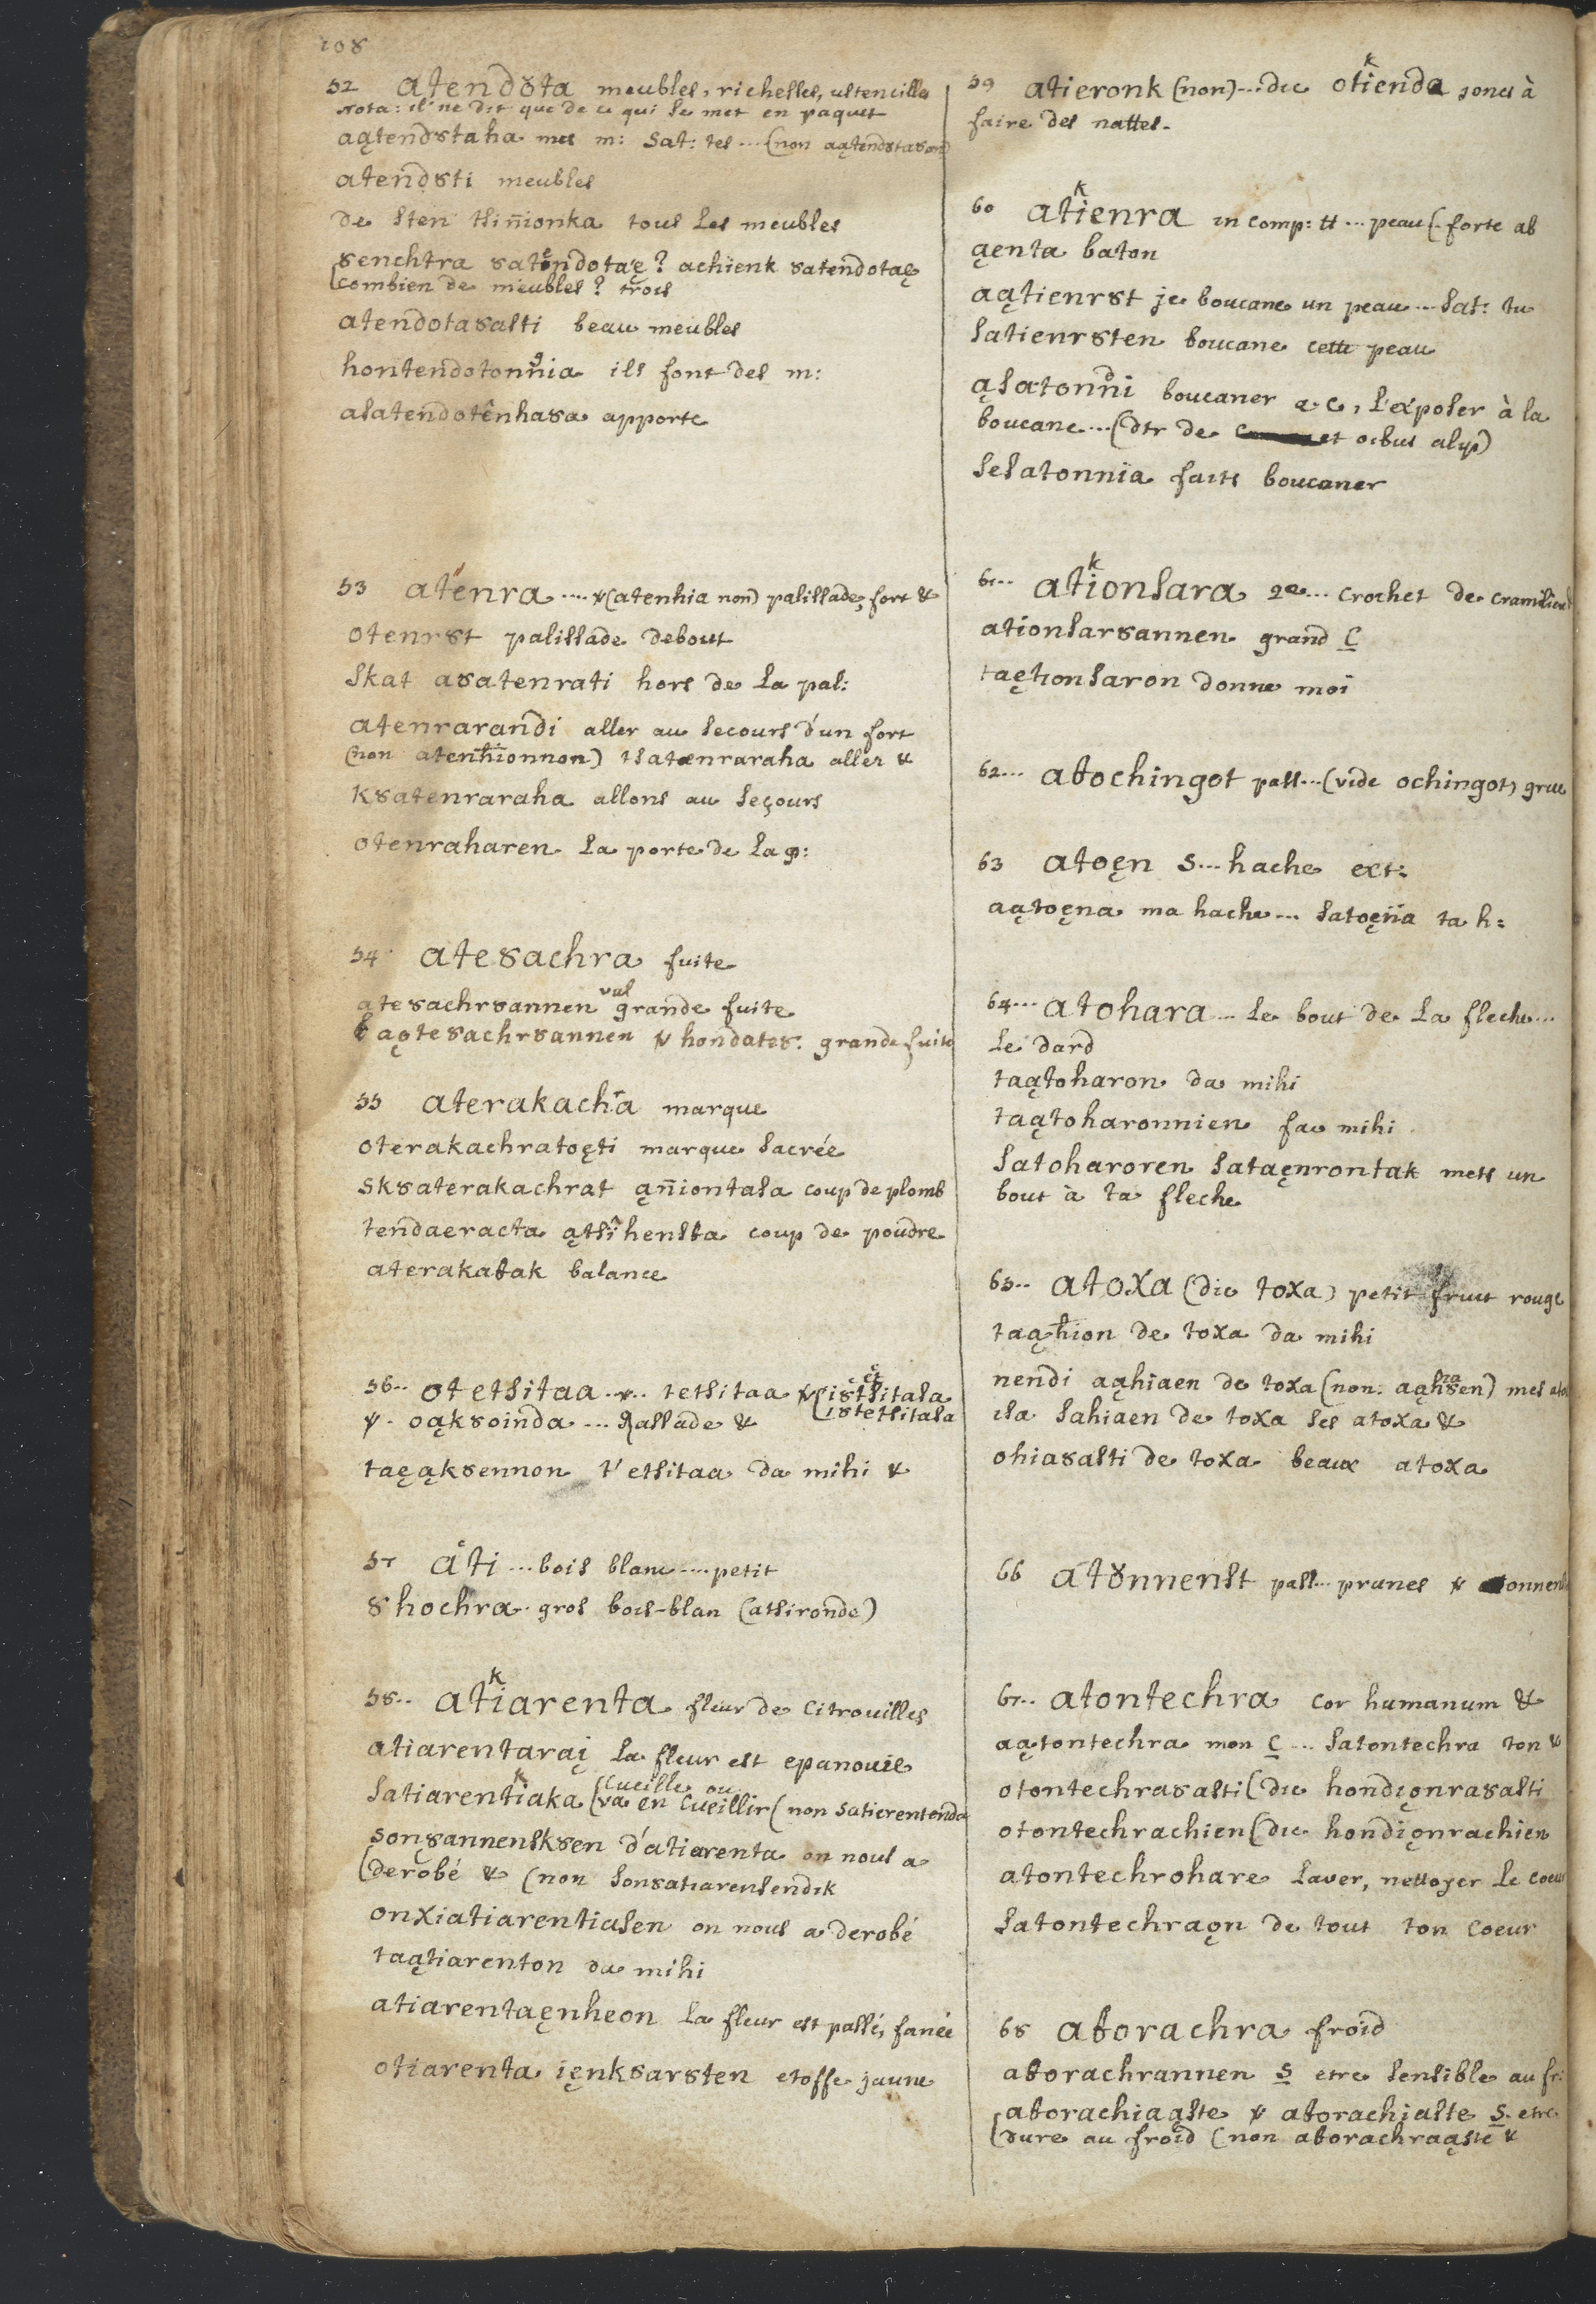 108
52 atendȣta meubles, richesses, ustencilles
Nota: il ne dit que de ce qui se met en paquet
aa̧tendȣtaha mes m: sat: tes ... (non aa̧tendȣtaȣan)
atendȣti meubles
de sten tsiñionka tous les meubles
ȣenchtra ȣatendotaȩ? achienk ȣatendotaȩ
(combien de meubles? trois
atendotaȣasti beau meubles
hontendotonnia ils font des m:
asatendotênhaȣa apporte
53 atenra .... (atenhia non) palissade, fort &
otenrȣt palissade debout
skat aȣatenrati hors de la pal:
atenrarandi aller au secours d'un fort
(non atenhionnon) tsatenraraha aller &
kȣatenraraha allons au secours
otenraharen la porte de la p:
54 ateȣachra fuite
ateȣachrȣannen val grande fuite
hondateȣ: grande fuite
55 aterakachia marque
oterakachratoȩti marque sacrée
skȣaterakachrat a̧ñiontasa coup de plomb
tendaeracta a̧tsihensta coup de poudre
aterakatak balance
56.. otetsitaa .. tetsitaa
oa̧kȣoinda ... Rassade & istetsitasa
taȩa̧kȣennon t'etsitaa da mihi &
57 ati ... bois blanc .... petit
ȣhochra gros bois-blan (atsironde)
k
58.. atiarenta fleur de Citrouilles
atiarentarai̧ la fleur est epanouie
satiarentiaka (Cueille ou
(va en Cueillir (non satierentenda
ȣonȣannenskȣen d'atiarenta on nous a
(derobé & (non sonȣatiarensendik
onxiatiarentiasen on nous a derobé
taa̧tiarenton da mihi
atiarentaȩnheon la fleur est passé, fanée
otiarenta iȩnkȣarȣten etoffe jaune
k
59 atieronk (non) ... dic otienda joncs à
faire des nattes.
k
60 atienra in comp: tt ... peau (forte ab
a̧enta baton
aa̧tienrȣt je boucane un peau ... sat: tu
satienrȣten boucane cette peau
a̧satonndi boucaner a.c, l'exposer à la
boucane ... (dtr de et oibus alyp)
sesatonnia fais boucaner
k
61.. ationsara 2ae... Crochet de cramilliere
ationsarȣannen grand C
taȩtionsaron donne moi
62... atochingot pall... (vide ochingot) grue
63 atoȩn S... hache ext:
aa̧toȩna ma hache ... satoȩna ta h:
64... atohara ... le bout de la fleche ...
le dard
taa̧toharon da mihi
taa̧toharonnien fac mihi
satoharoren sataȩnrontak mets un
bout à ta fleche
65.. atoxa (dic toxa) petit fruit rouge
taa̧hion de toxa da mihi
nendi aa̧hiaen de toxa (non: aa̧hȣen) mes ato
isa sahiaen de toxa ses atoxa &
ohiaȣasti de toxa beaux atoxa
66 atȣnnenst pall... prunes
67.. atontechra cor humanum &
aa̧tontechra mon C ... satontechra ton &
otontechraȣasti (dic hondio̧nraȣasti
otontechrachien (dic hondio̧nrachien
atontechrohare laver, nettoyer le coeur
satontechrao̧n de tout ton coeur
68 atorachra froid
atorachrannen S etre sensible au fr:
atorachiaa̧ste atorachiaste S. etre
(dure au froid (non atorachraa̧ste &